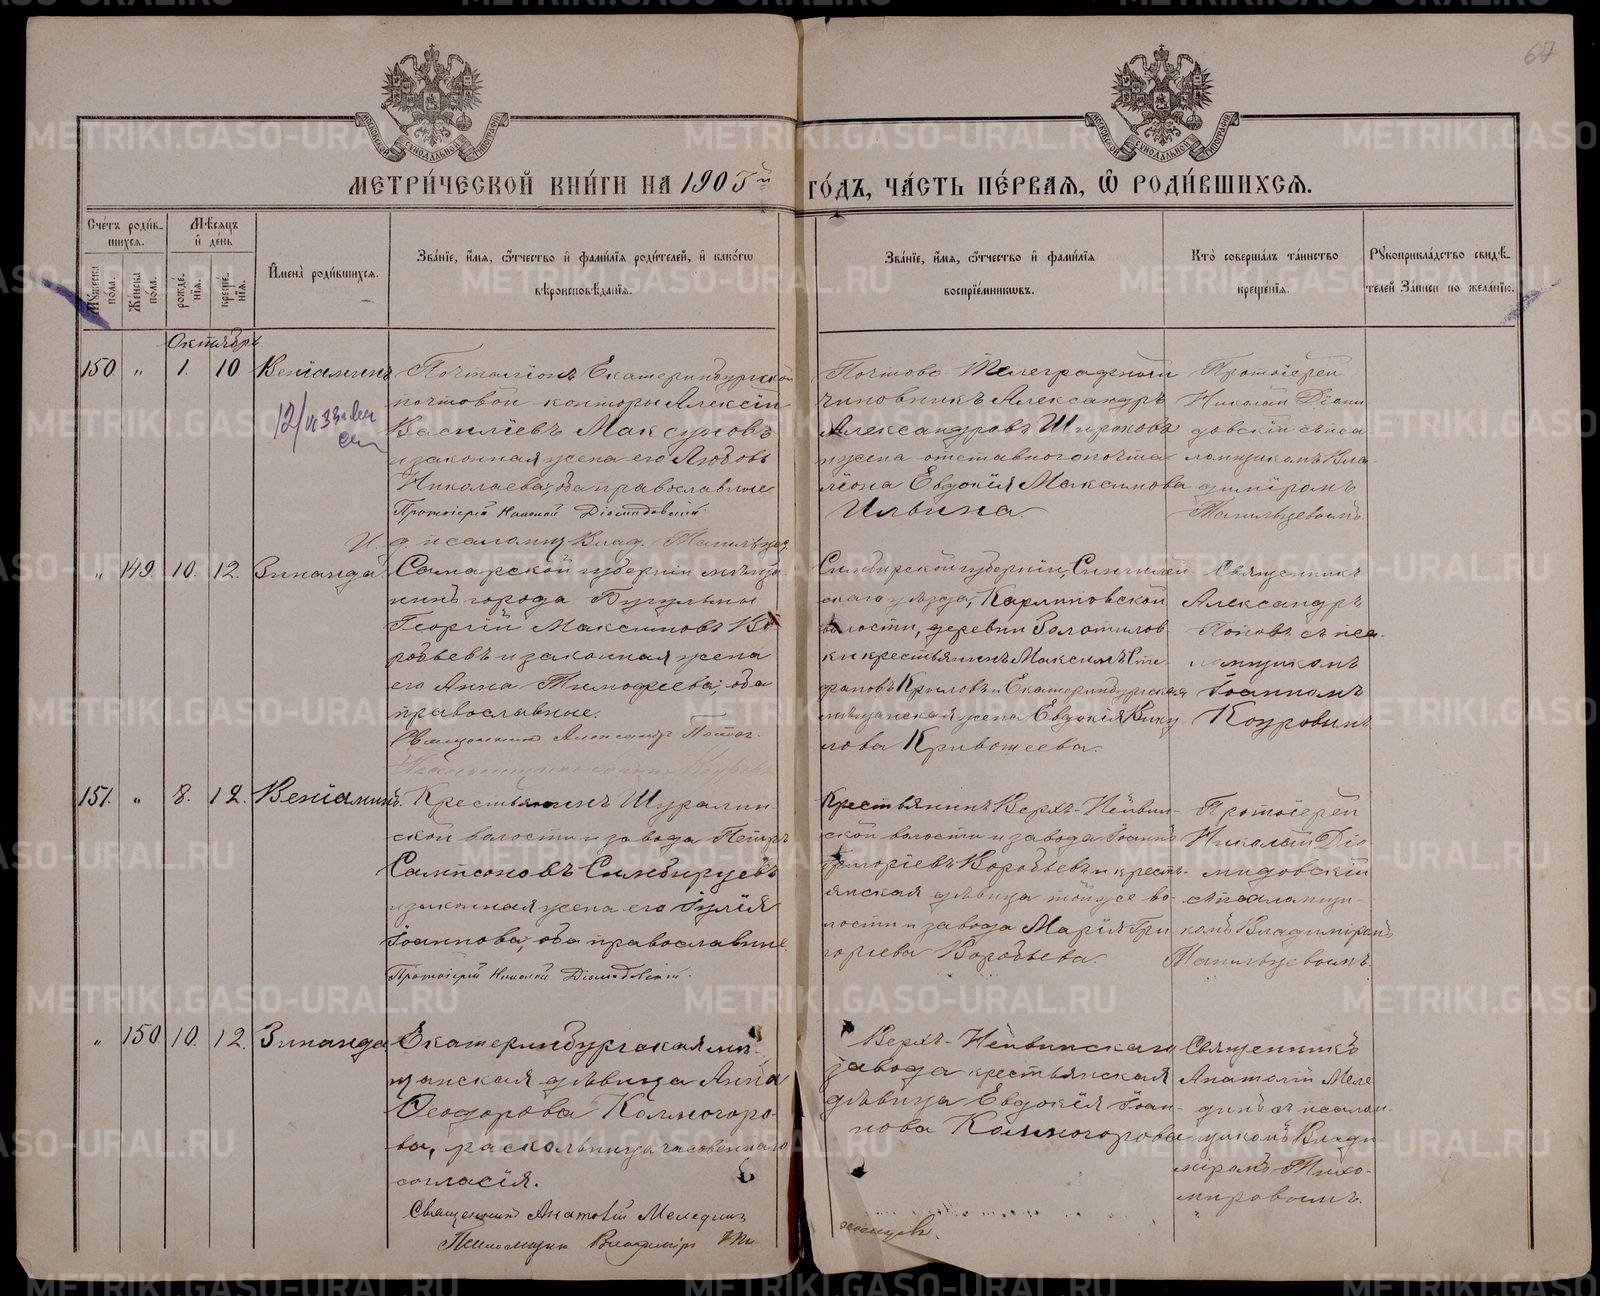 67
МОСКОВСКОЙ СѴНОДАЛЬНОЙ ТИПОГРАФІИ
МОСКОВСКОЙ СѴНОДАЛЬНОЙ ТИПОГРАФІИ
МЕТРИ́ЧЕСКОЙ КНИ́ГИ НА 1905й ГО́ДЪ, ЧА́СТЬ ПЕ́РВАЯ, Ѡ҆ РОДИ́ВШИХСЯ.
Сче́тъ роди́в-
шихся.
Мѣ́сяцъ
и҆ де́нь
Му́жеска по́ла.
Же́нска по́ла.
рожде́-
нія.
креще́-
нія.
И҆мена̀ роди́вшихся.
Зва́ніе, и҆́мя, ѻ҆́тчество и҆ фами́лія роди́телей, и҆ како́гѡ
вѣроисповѣ́данія.
Зва́ніе, и҆́мя, ѻ҆́тчество и҆ фами́лія
воспріе́мниковъ.
Кто̀ соверша́лъ та́инство
креще́нія.
Рукоприкла́дство свидѣ́-
телей за́писи по жела́нію.
Октябрь
150. " 1. 10. Веніаминъ
Почталіонъ Екатеринбургской
почтовой конторы Алексѣй
Василіевъ Максуновъ
и законная жена его Любовь
Николаева; оба православные.
Протоіерей Николай Діомидовскій.
И. д. псаломщ. Влад. Топильцев
Почтово-Телеграфный
чиновникъ Александръ
Александровъ Широковъ
и жена отставного почта
ліона Евдокія Максимова
Ильина
Протоіерей
Николай Діоми
довскій съ псa
ломщикомъ Вла-
диміромъ
" 149. 10. 12. Зинаида
Самарской губерніи мѣща
нинъ города Бугульмы
Георгій Максимовъ Во
робьевъ и законная жена
его Анна Тимофеева; оба
православные.
Священникъ Александръ Поповъ.
Симбирской губерніи, Сингилей
скаго уѣзда, Карлинской
волости, деревни
ки крестьянинъ Максимъ Сте
фановъ Крыловъ и Екатеринбургская
мѣщанская жена Евдокія Вику
лова Кривошеева.
Священникъ
Александръ
Поповъ съ пса-
ломщикомъ
Іоанномъ
Коуровымъ
151. " 8. 12. Веніаминъ.
Крестьянинъ Шуралин-
ской волости и завода Петръ
Сампсоновъ Симбирцевъ
и законная жена его Іулія
Іоаннова; оба православные.
Протоіерей Николай Діомидовскій.
Крестьянинъ Верхъ-Нейвин-
ской волости и завода Іоаннъ
Григоріевъ Воробьевъ и кресть-
янская дѣвица той же во-
лости и завода Марія Гри
горьева Воробьева.
Протоіерей
Николай Діо-
мидовскій
съ псаломщи-
комъ Владиміромъ
" 150. 10. 12. Зинаида
Екатеринбургская мѣ-
щанская дѣвица Анна
Ѳеодорова Колмогоро-
ва, раскольница часовеннаго
согласія.
Священникъ Анатолій Меледин
Псаломщикъ Владиміръ Ти
Верхъ-Нейвинскаго
завода крестьянская
дѣвица Евдокія Іоан-
нова Колмогорова
Священникъ
Анатолій Меле
динъ съ псалом-
щикомъ Влади-
міромъ Тихо-
мировымъ.